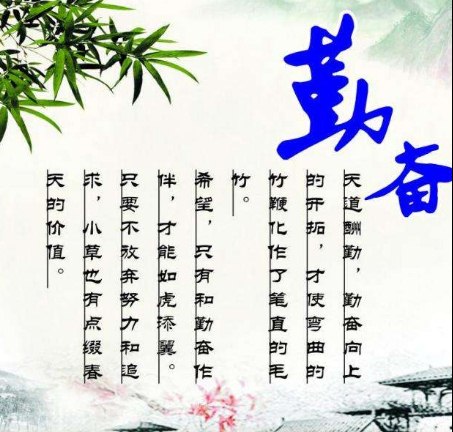 勤奋
天道酬勤，勤奋向上
的开拓，才使弯曲的
竹鞭化作了笔直的毛
竹。
希望，只有和勤奋作
伴，才能如虎添翼。
只要不放弃努力和追
求，小草也有点缀春
天的价值。